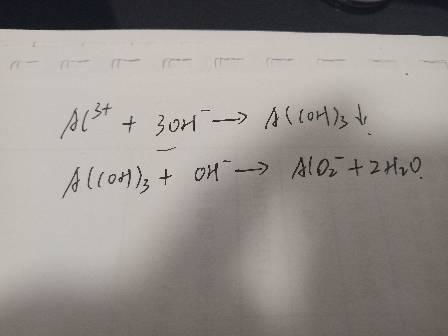 Al³⁺ + 3OH⁻ → Al(OH)₃↓
Al(OH)₃ + OH⁻ → AlO₂⁻ + 2H₂O